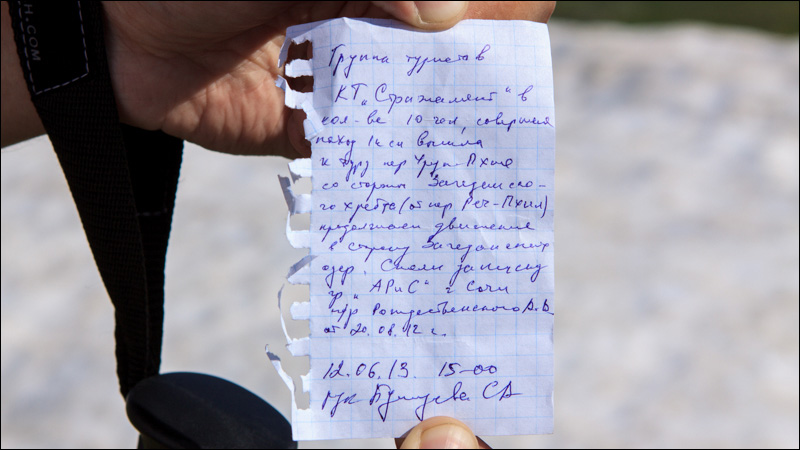 H.COM
Группа туристов
КТ „Стрижамент" в
кол-ве 10 чел, совершая
поход 1к.сл вышла
к туру пер Уруп-Пхия
со стороны Загеданско-
го хребта (от пер. Реч-Пхия)
продолжаем движение
в сторону Загеданских
озер. Сняли записку
гр „АРиС" г Сочи
п/р Рождественского
от 20.08.12 г.
12.06.13 15-00
СА